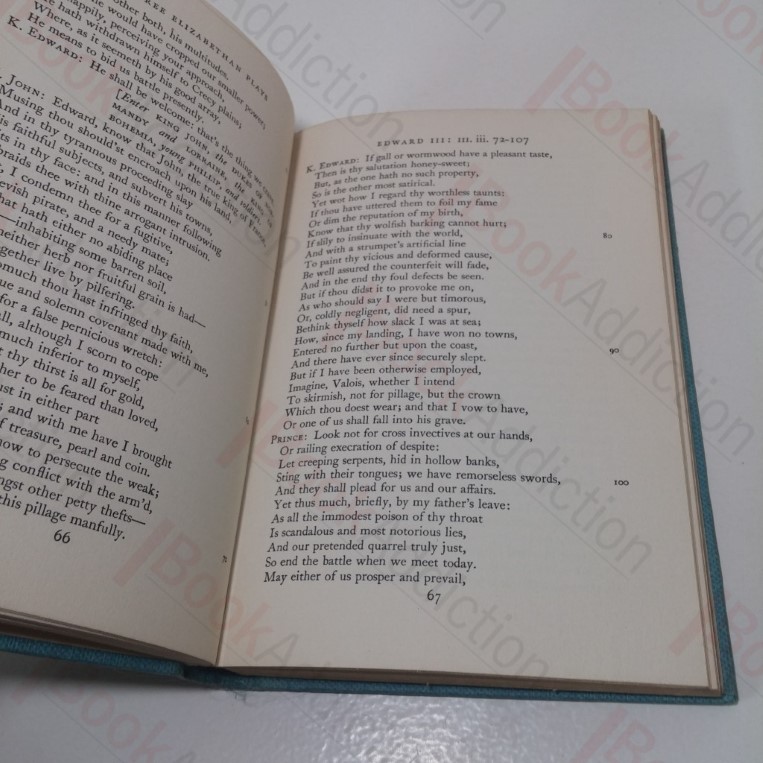 REE ELIZABETHAN PLAYS
other both, his multitudes.
ne would have cropped our smaller power;
happily, perceiving your approach,
e hath withdrawn himself to Cressy plains;
Where, as it seemeth by his good array,
He means to bid us battle presently.
K. EDWARD: He shall be welcome; that's the thing we
[Enter KING JOHN, the DUKES OF
MANDY and LORRAINE, the
BOHEMIA, young PHILLIP, and soldiers.
JOHN: Edward, know that John, the true king of France,
Musing thou should'st encroach upon his land,
And in thy tyrannous proceeding slay
is faithful subjects, and subvert his towns,
ts in thy face: and in this manner following
braids thee with thine arrogant intrusion.
, I condemn thee for a fugitive,
evish pirate, and a needy mate;
hat hath either no abiding place
—inhabiting some barren soil,
neither herb nor fruitful grain is had—
gether live by pilfering.
omuch thou hast infringed thy faith,
ue and solemn covenant made with me,
for a false pernicious wretch:
ll, although I scorn to cope
much inferior to myself,
t thy thirst is all for gold,
her to be feared than loved,
ust in either part
s and with me have I brought
f treasure, pearl and coin.
now to persecute the weak;
g conflict with the arm'd,
ngst other petty thefts—
this pillage manfully.
66
EDWARD III: III. iii. 72-107
K. EDWARD: If gall or wormwood have a pleasant taste,
Then is thy salutation honey-sweet;
But, as the one hath no such property,
So is the other most satirical.
Yet wot how I regard thy worthless taunts:
If thou have uttered them to foil my fame
Or dim the reputation of my birth,
Know that thy wolfish barking cannot hurt;
If slily to insinuate with the world, 80
And with a strumpet's artificial line
To paint thy vicious and deformed cause,
Be well assured the counterfeit will fade,
And in the end thy foul defects be seen.
But if thou didst it to provoke me on,
As who should say I were but timorous,
Or, coldly negligent, did need a spur,
Bethink thyself how slack I was at sea;
How, since my landing, I have won no towns,
Entered no further but upon the coast, 90
And there have ever since securely slept.
But if I have been otherwise employed,
Imagine, Valois, whether I intend
To skirmish, not for pillage, but the crown
Which thou doest wear; and that I vow to have,
Or one of us shall fall into his grave.
PRINCE: Look not for cross invectives at our hands,
Or railing execration of despite:
Let creeping serpents, hid in hollow banks,
Sting with their tongues; we have remorseless swords, 100
And they shall plead for us and our affairs.
Yet thus much, briefly, by my father's leave:
As all the immodest poison of thy throat
Is scandalous and most notorious lies,
And our pretended quarrel truly just,
So end the battle when we meet today.
May either of us prosper and prevail,
67
BookAddiction